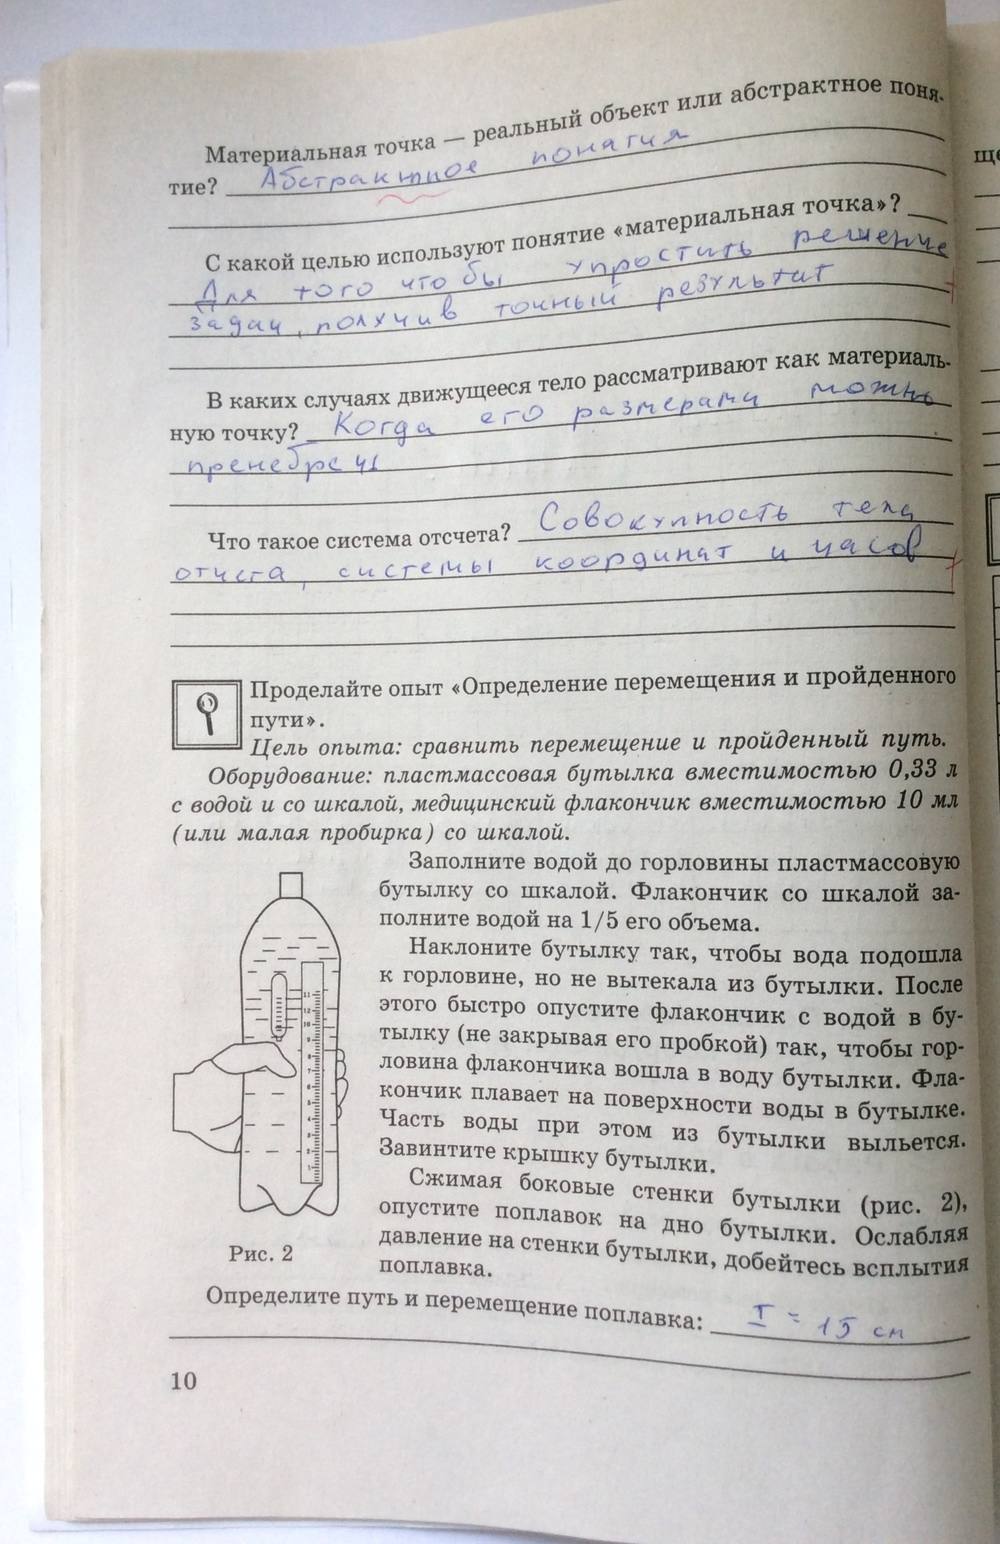 Материальная точка — реальный объект или абстрактное поня-
тие? Абстрактное понятия
С какой целью используют понятие «материальная точка»?
Для того что бы упростить решение
задач, получив точный результат
В каких случаях движущееся тело рассматривают как материаль-
ную точку? Когда его размерами можно
пренебречь
Что такое система отсчета? Совокупность тела
отчета, системы координат и часов
Проделайте опыт «Определение перемещения и пройденного
пути».
Цель опыта: сравнить перемещение и пройденный путь.
Оборудование: пластмассовая бутылка вместимостью 0,33 л
с водой и со шкалой, медицинский флакончик вместимостью 10 мл
(или малая пробирка) со шкалой.
Заполните водой до горловины пластмассовую
бутылку со шкалой. Флакончик со шкалой за-
полните водой на 1/5 его объема.
Наклоните бутылку так, чтобы вода подошла
к горловине, но не вытекала из бутылки. После
этого быстро опустите флакончик с водой в бу-
тылку (не закрывая его пробкой) так, чтобы гор-
ловина флакончика вошла в воду бутылки. Фла-
кончик плавает на поверхности воды в бутылке.
Часть воды при этом из бутылки выльется.
Завинтите крышку бутылки.
Сжимая боковые стенки бутылки (рис. 2),
опустите поплавок на дно бутылки. Ослабляя
давление на стенки бутылки, добейтесь всплытия
поплавка.
Рис. 2
Определите путь и перемещение поплавка: I = 15 см
10
ще